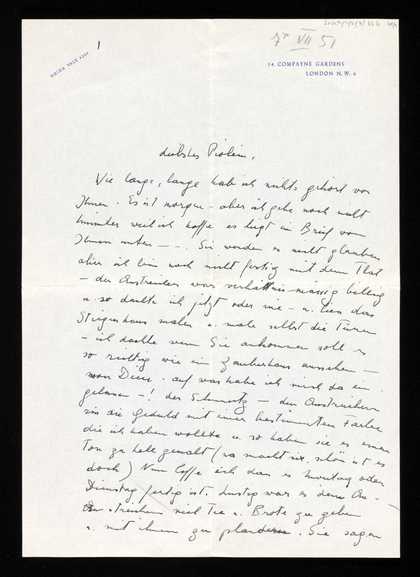 7ten VII 51
14 COMPAYNE GARDENS
LONDON N.W. 6
1
liebstes Violein,
Wie lange, lange hab ich nichts gehört von
Ihnen. Es ist morgen – aber ich gehe noch nicht
hinunter weil ich hoffe es liegt ein Brief von
Ihnen unten – –. Sie werden es nicht glauben
aber ich bin noch nicht fertig mit dem Flat
– der Anstreicher war verhältnismässig billig
u. so dachte ich jetzt oder nie – u. liess das
Stiegenhaus malen u. male selbst die Türen
– ich dachte wenn Sie ankommen soll es
so richtig wie ein Zauberhaus aussehen –
mon Dieu. auf was habe ich mich da ein
gelassen –! der Schmutz – den Anstreichern
riss die Geduld mit einer bestimmten Farbe
die ich haben wollte u. so haben sie es einen
Ton zu hell gemalt (na macht nix, schön ist es
doch) Nun hoffe ich dass es Montag oder
Dienstag fertig ist. Lustig war es den An-
streichern viel Tee u. Brote zu geben
u. mit ihnen zu plaudern. Sie sagen